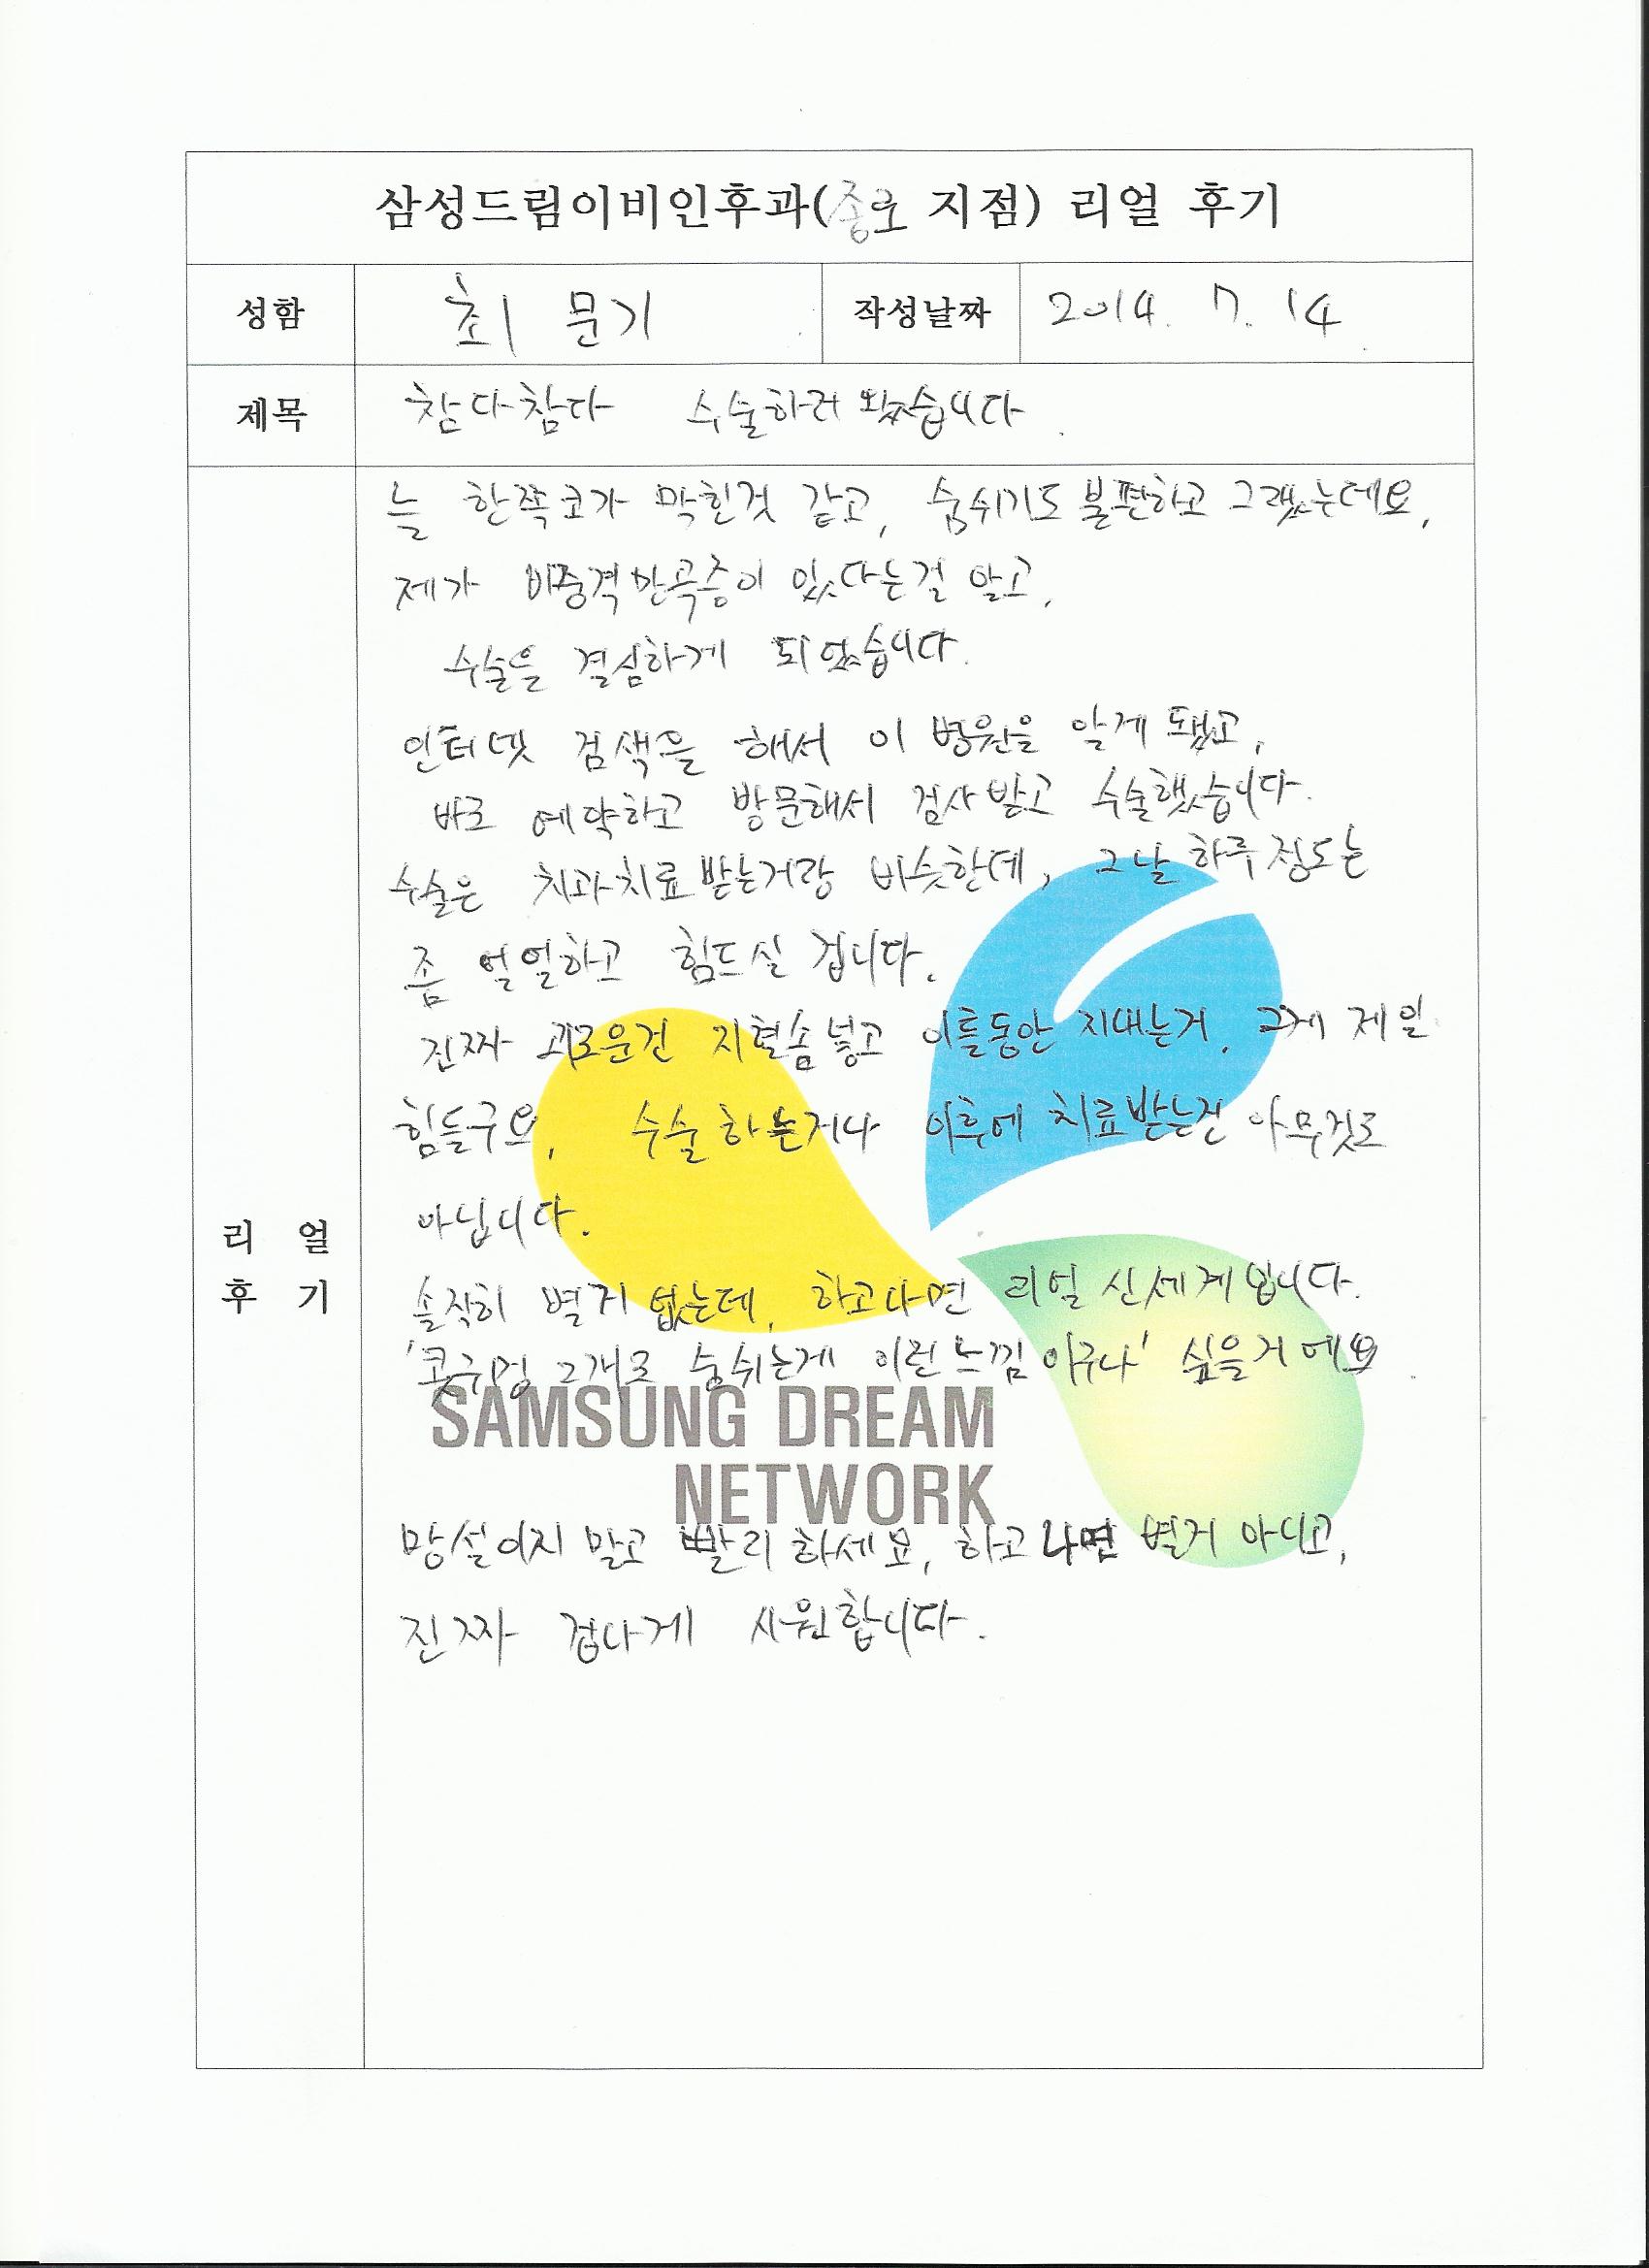 삼성드림이비인후과(종로 지점) 리얼 후기
성함 최 문기 작성날짜 2014. 7. 14
제목 참다참다 수술하러 왔습니다.
늘 한쪽코가 막힌것 같고, 숨쉬기도 불편하고 그랬는데요,
제가 비중격만곡증이 있다는걸 알고,
수술을 결심하게 되었습니다.
인터넷 검색을 해서 이 병원을 알게 됐고,
바로 예약하고 방문해서 검사받고 수술했습니다.
수술은 치과치료받는거랑 비슷한데, 그날 하루정도는
좀 얼얼하고 힘드실 겁니다.
진짜 괴로운건 지혈솜넣고 이틀동안 지내는거. 그게 제일
힘들구요, 수술하는거나 이후에 치료받는건 아무것도
아닙니다.
리 얼
후 기
솔직히 별거 없는데, 하고나면 리얼 신세계입니다.
'콧구멍 2개로 숨쉬는게 이런느낌이구나' 싶을거에요
SAMSUNG DREAM
NETWORK
망설이지 말고 빨리 하세요, 하고 나면 별거 아니고,
진짜 겁나게 시원합니다.